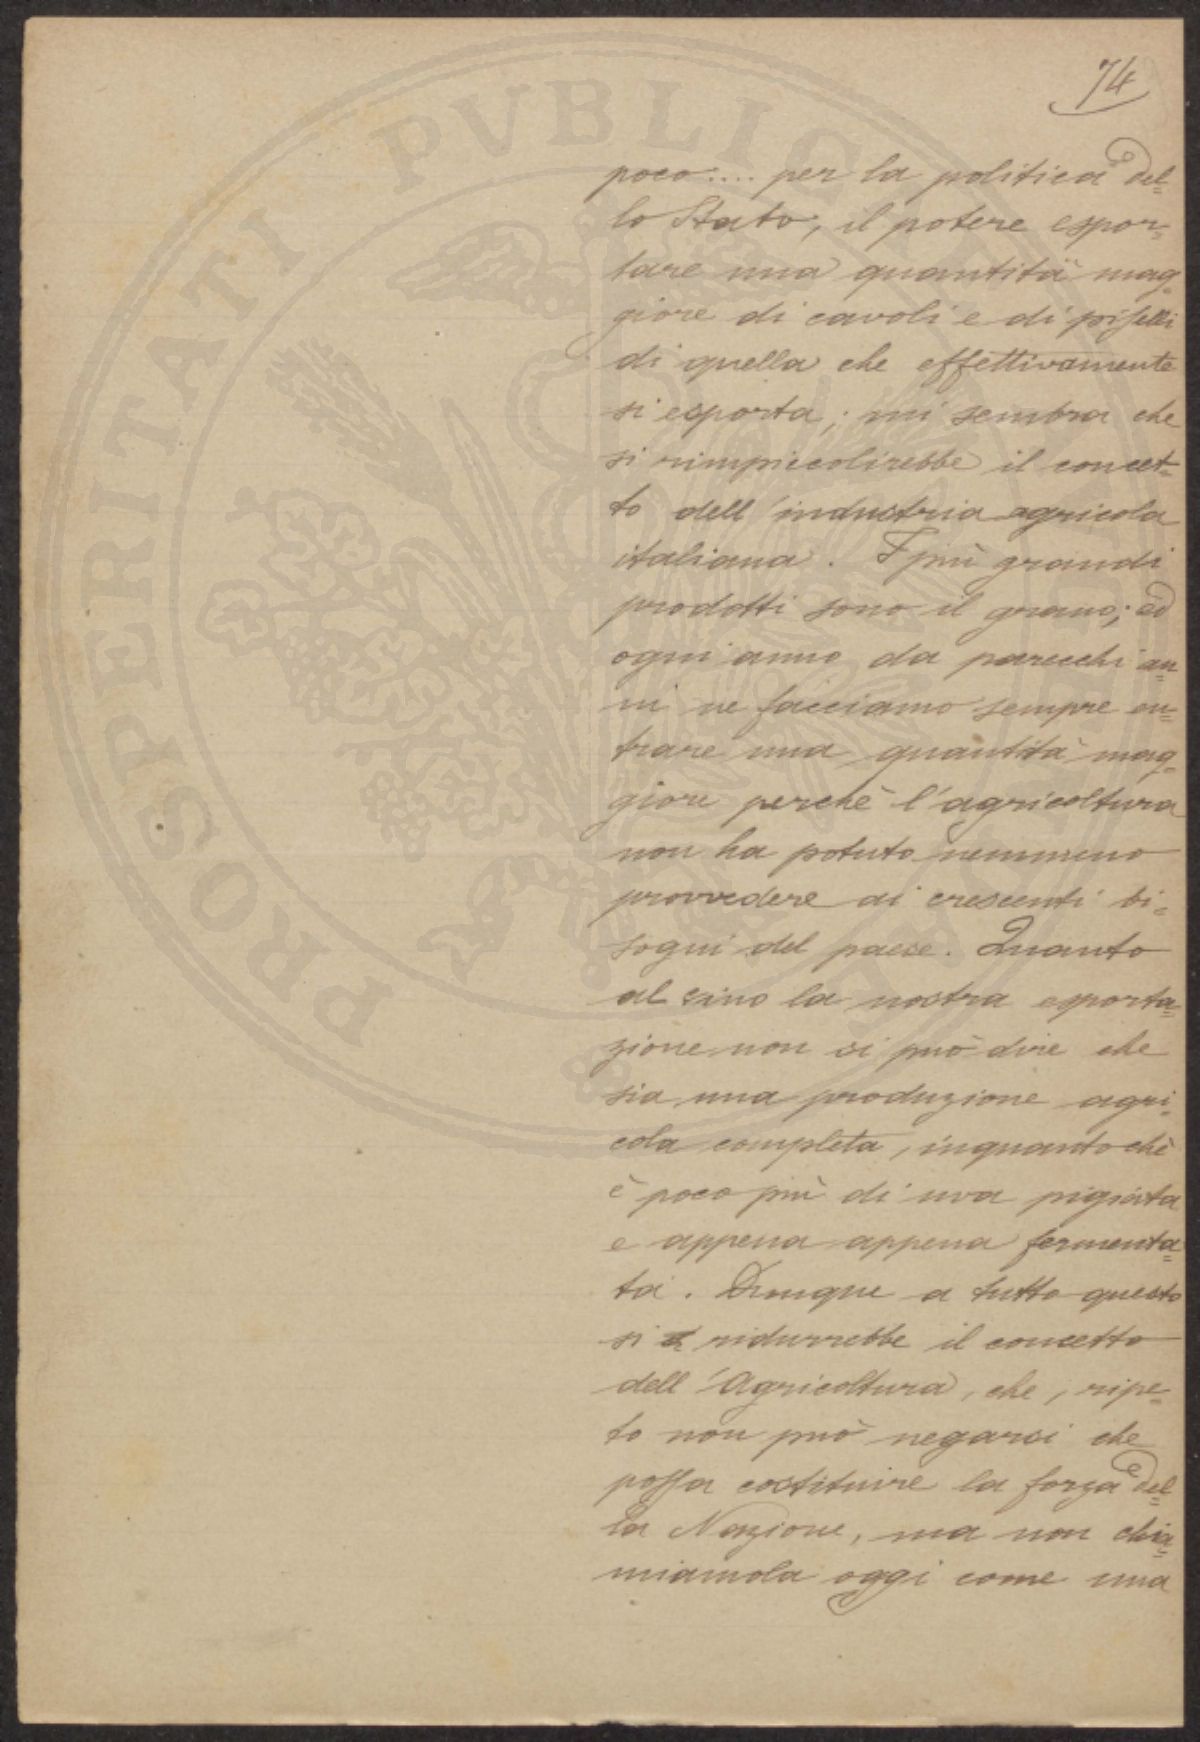 74
poco.... per la politica del=
lo Stato, il potere espor=
tare una quantità mag=
giore di cavoli e di piselli
di quella che effettivamente
si esporta; mi sembra che
si rimpiccolirebbe il concet=
to dell'industria agricola
italiana. I più grandi
prodotti sono il grano; ed
ogni anno da parecchi an=
ni ne facciamo sempre en=
trare una quantità mag=
giore perchè l'agricoltura
non ha potuto nemmeno
provvedere ai crescenti bi=
sogni del paese. Quanto
al vino la nostra esporta=
zione non si può dire che
sia una produzione agri=
cola completa, inquantochè
è poco più di uva pigiata
e appena appena fermenta=
ta. Dunque a tutto questo
si ridurrebbe il concetto
dell'Agricoltura, che, ripe=
to non può negarsi che
possa costituire la forza del=
la Nazione, ma non chia=
miamola oggi come una
PROSPERITATI PVBLICAE